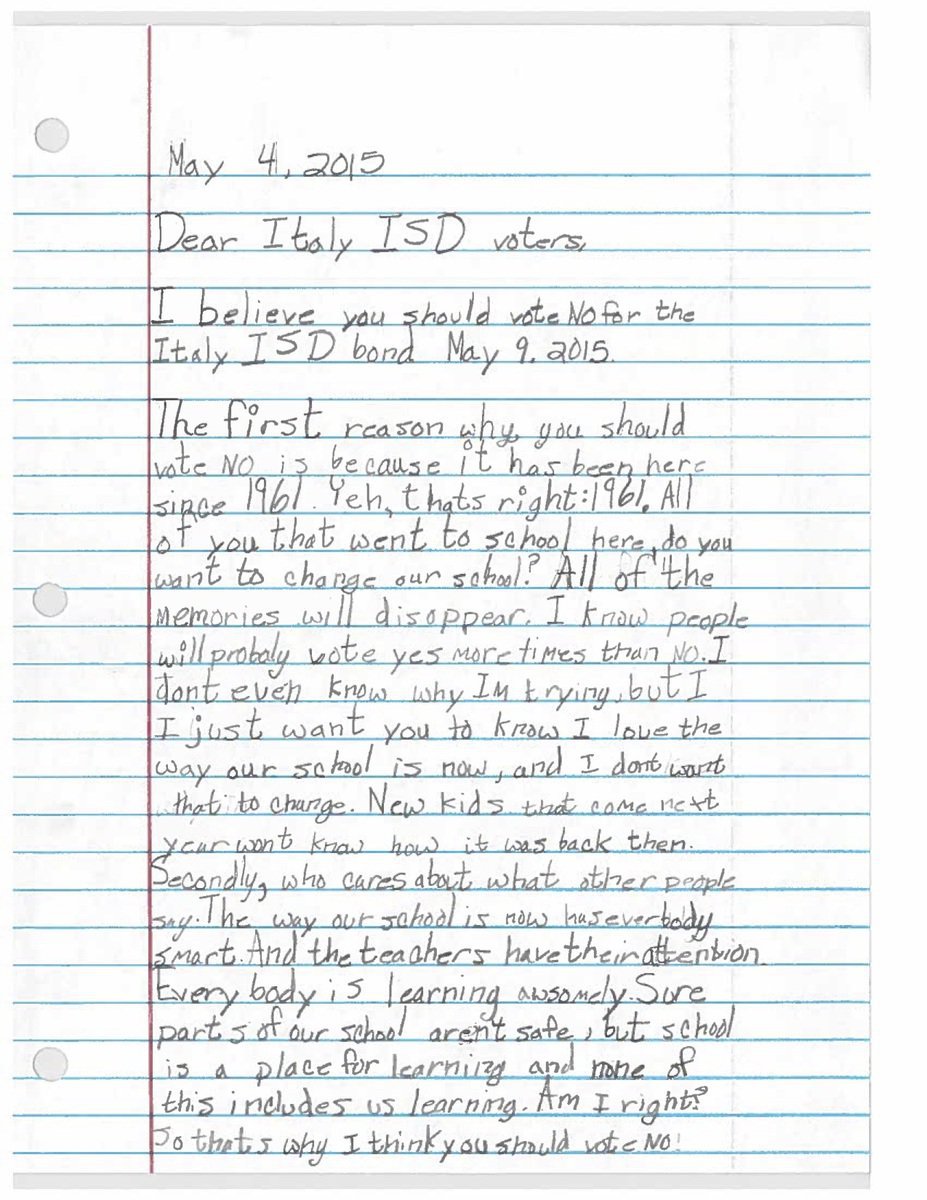 May 4, 2015
Dear Italy ISD voters,
I believe you should vote NO for the
Italy ISD bond May 9, 2015.
The first reason why you should
vote NO is because it has been here
since 1961. Yeh, thats right: 1961. All
of you that went to school here, do you
want to change our school? All of the
memories will disoppear. I know people
will probaly vote yes more times than NO. I
dont even know why Im trying, but I
I just want you to know I love the
way our school is now, and I dont want
that to change. New kids that come next
year wont know how it was back then.
Secondly, who cares about what other people
say. The way our school is now has everbody
smart. And the teachers have their attention.
Everybody is learning awsomely. Sure
parts of our school aren't safe, but school
is a place for learning and none of
this includes us learning. Am I right?
So thats why I think you should vote NO!